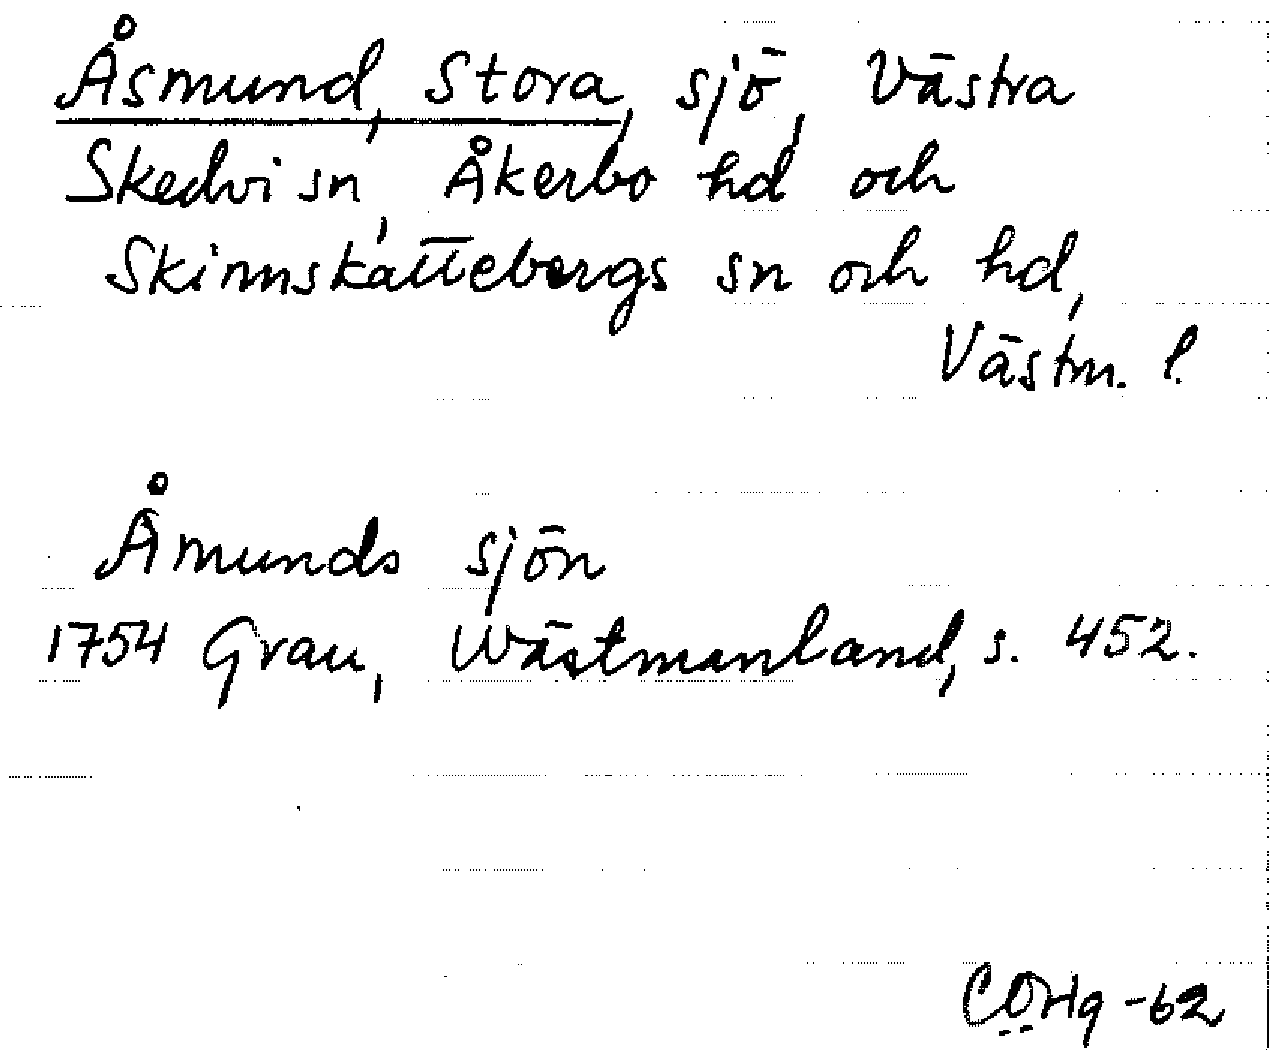 Åsmund, Stora, sjö, Västra
Skedvi sn, Åkerbo hd och
Skinnskattebergs sn och hd,
Västm. l.
Åmunds sjön
1754 Grau, Wästmanland, s. 452.
-62